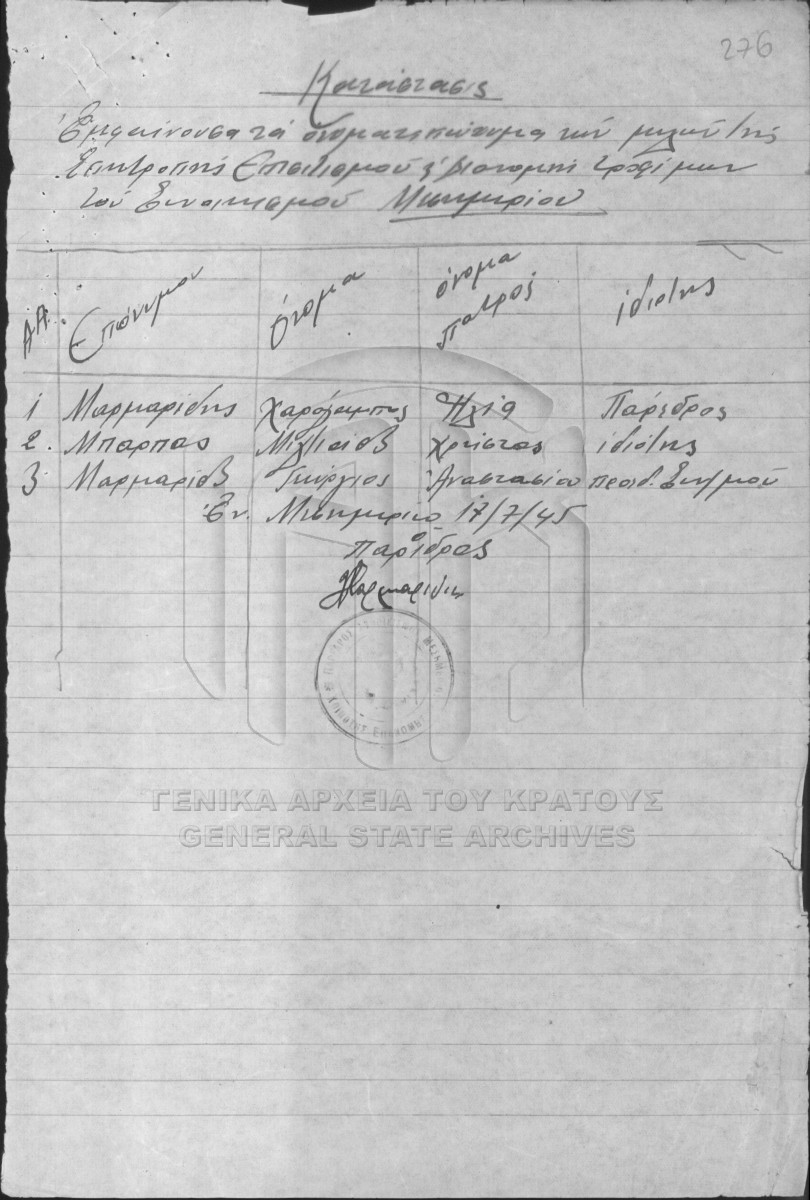 276
Κατάστασις
Εμφαίνουσα τά ονοματεπώνυμα τών μελών της
Επιτροπής Επισιτισμού & διανομής τροφίμων
τού Συνοικισμού
Α.Α. Επώνυμον όνομα όνομα πατρός ιδιότης
1 Μαρμαρίδης Χαράλαμπος Ηλία Πάρεδρος
2. Μπάρπας Χρήστος ιδιότης
3 Μαρμαρίδ Γεώργιος Αναστασίου προεδ.
Εν. 17/7/45
Ο
Παρέδρος
Μαρμαρίδης
ΓΕΝΙΚΑ ΑΡΧΕΙΑ ΤΟΥ ΚΡΑΤΟΥΣ
GENERAL STATE ARCHIVES